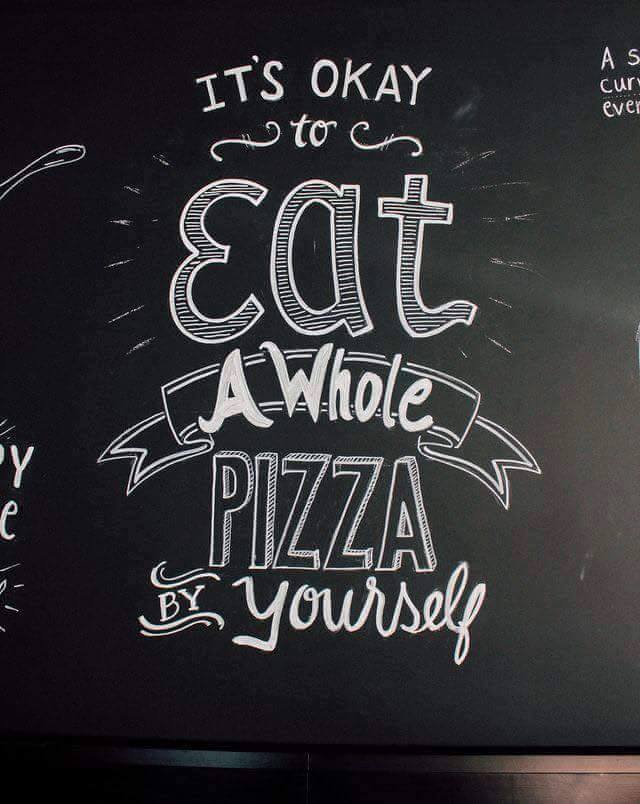 IT'S OKAY
to
Eat
A Whole
PIZZA
BY yourself
A